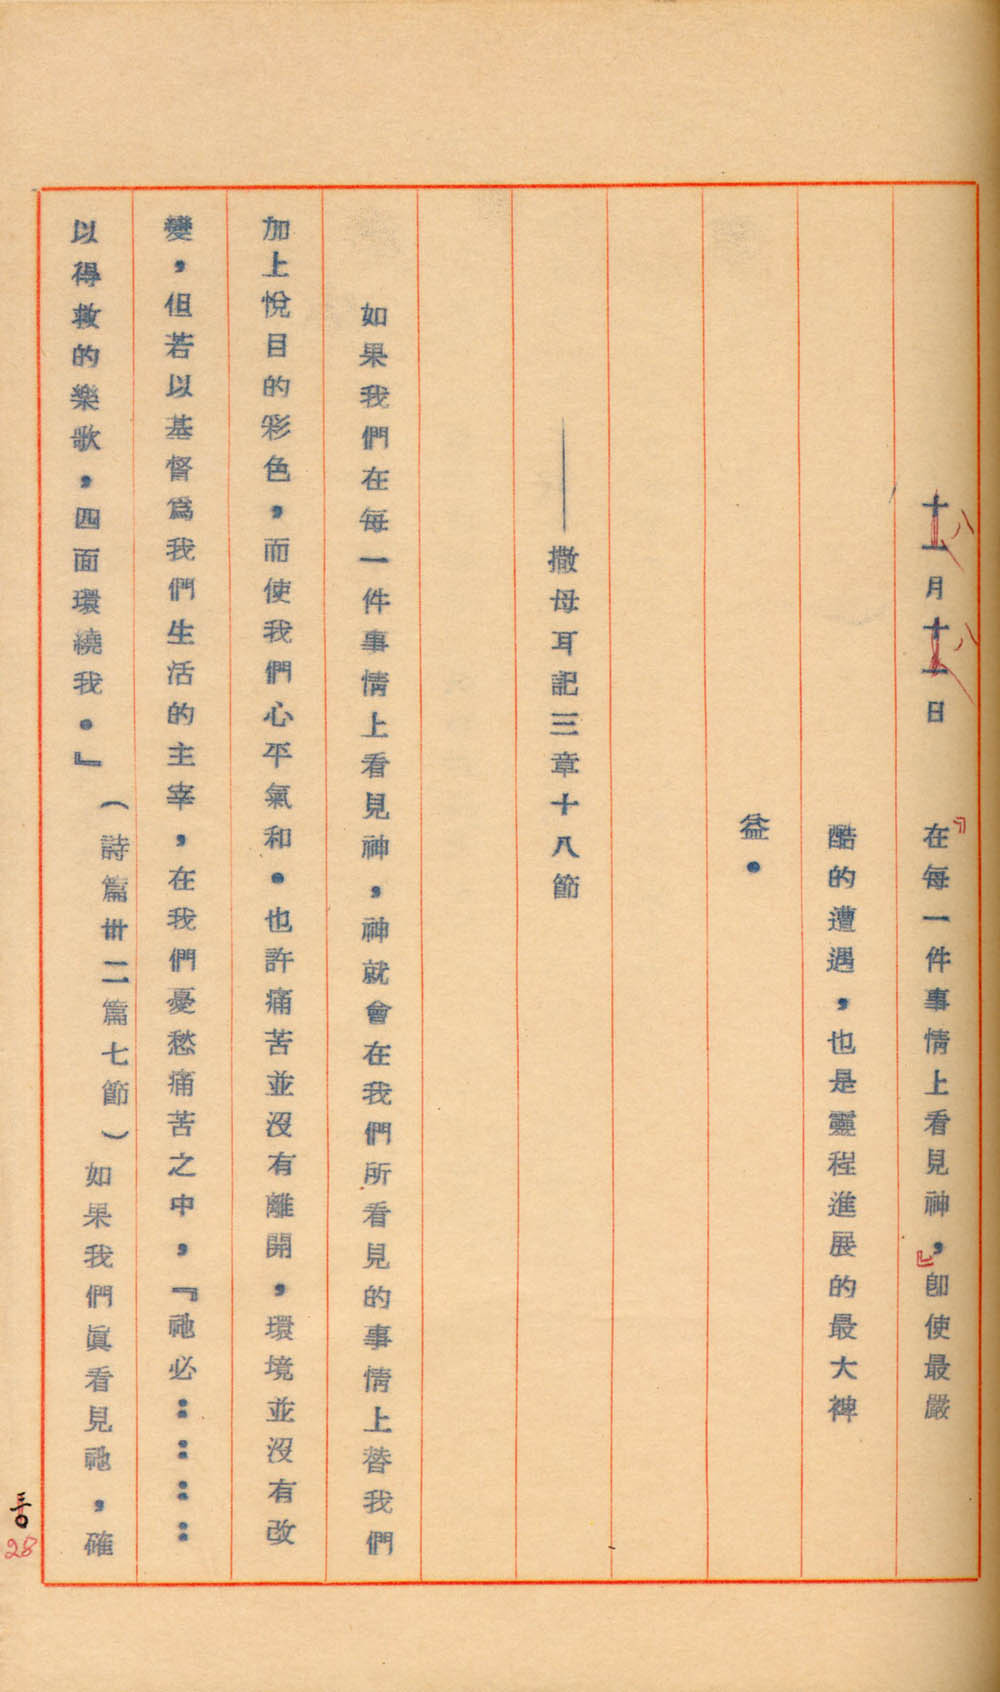 十一月十一日 在每一件事情上看見神，卽使最嚴
八 八
『 』
酷的遭遇，也是靈程進展的最大裨
益。
——撒母耳記三章十八節
如果我們在每一件事情上看見神，神就會在我們所看見的事情上替我們
加上悅目的彩色，而使我們心平氣和。也許痛苦並沒有離開，環境並沒有改
變，但若以基督爲我們生活的主宰，在我們憂愁痛苦之中，『祂必…………
以得救的樂歌，四面環繞我。』（詩篇卅二篇七節）如果我們眞看見祂，確
28